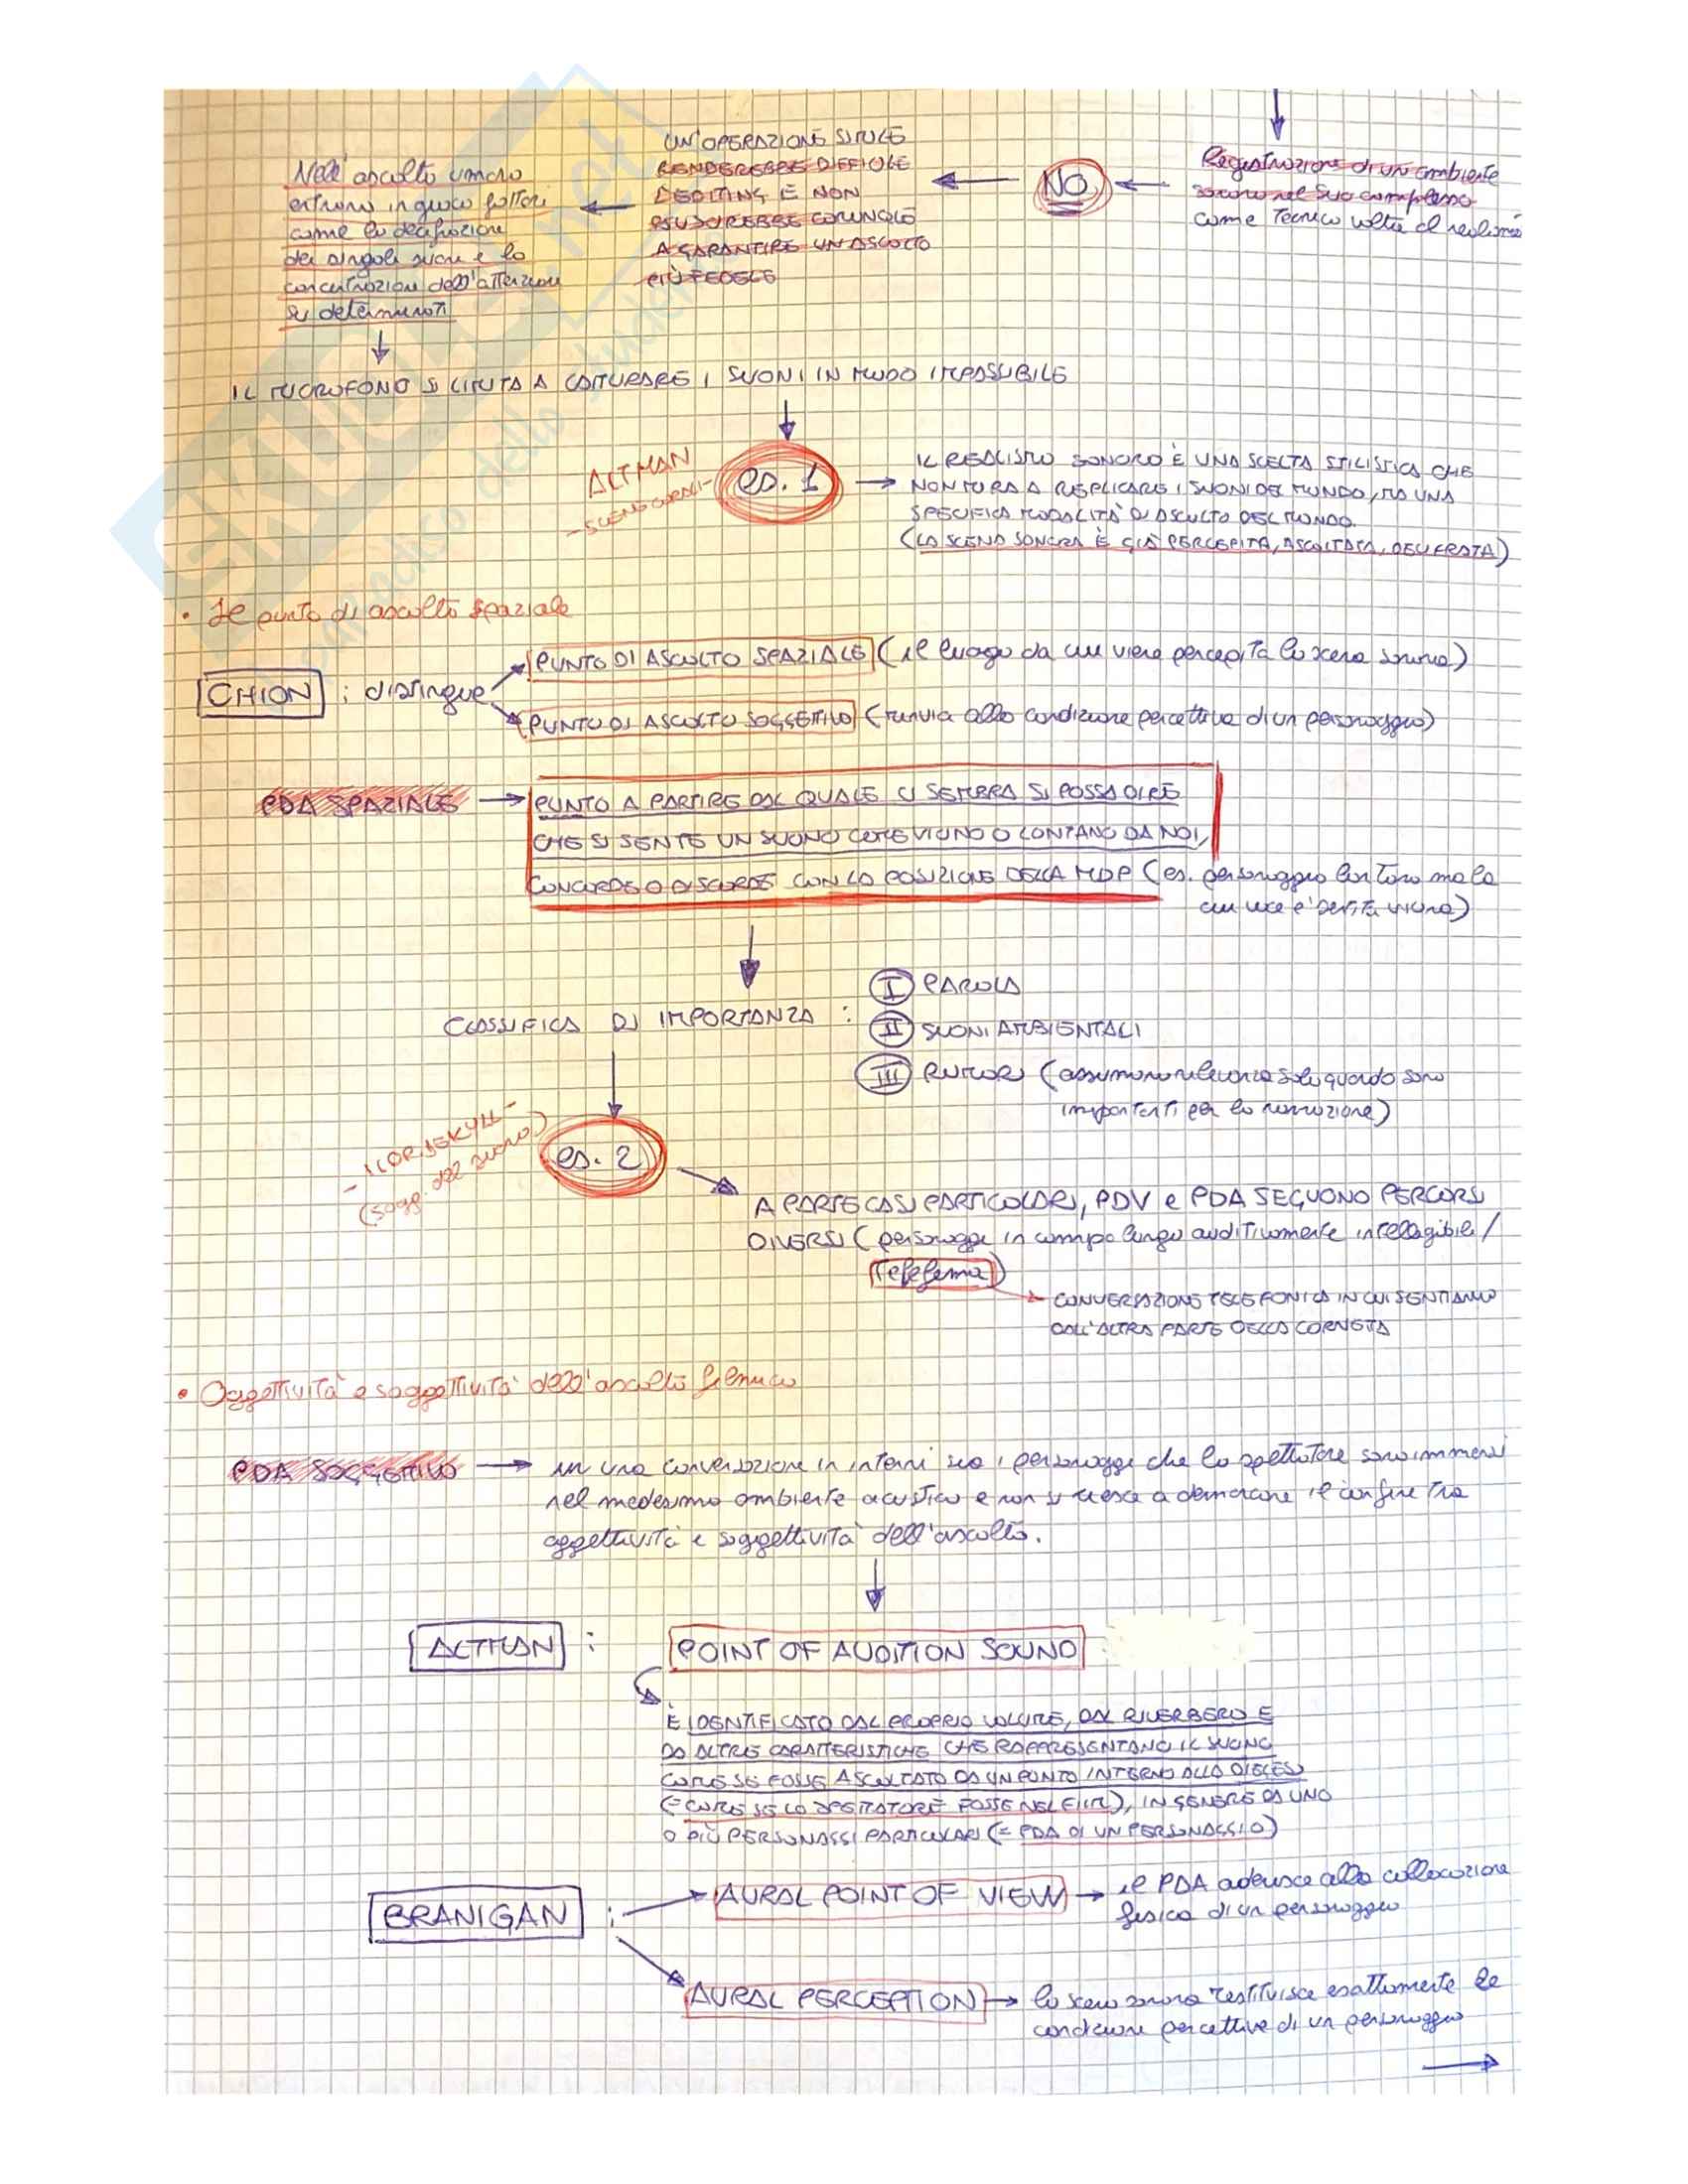 Registrazione di un ambiente
sonoro nel suo complesso
come tecnica volta al realismo
NO
UN'OPERAZIONE SIMILE
RENDEREBBE DIFFICILE
L'EDITING E NON
RIUSCIREBBE COMUNQUE
A GARANTIRE UN ASCOLTO
PIÙ FEDELE
Nell'ascolto umano
entrano in gioco fattori
come la decifrazione
dei singoli suoni e la
concentrazione dell'attenzione
su determinati
IL MICROFONO SI LIMITA A CATTURARE I SUONI IN MODO IMPASSIBILE
ALTMAN
-SCENE CORALI-
es. 1
IL REALISMO SONORO È UNA SCELTA STILISTICA CHE
NON MIRA A REPLICARE I SUONI DEL MONDO, MA UNA
SPECIFICA MODALITÀ DI ASCOLTO DEL MONDO.
(LA SCENA SONORA È GIÀ PERCEPITA, ASCOLTATA, DECIFRATA)
• Il punto di ascolto spaziale
CHION : distingue
PUNTO DI ASCOLTO SPAZIALE (il luogo da cui viene percepita la scena sonora)
PUNTO DI ASCOLTO SOGGETTIVO (rinvia alla condizione percettiva di un personaggio)
PDA SPAZIALE
PUNTO A PARTIRE DAL QUALE CI SEMBRA SI POSSA DIRE
CHE SI SENTE UN SUONO COME VICINO O LONTANO DA NOI,
CONCORDE O DISCORDE CON LA POSIZIONE DELLA MDP (es. personaggio lontano ma la
cui voce è sentita vicina)
CLASSIFICA DI IMPORTANZA :
I PAROLA
II SUONI AMBIENTALI
III RUMORI (assumono rilevanza solo quando sono
importanti per la narrazione)
- IL DR. JEKYLL -
(sogg. del suono)
es. 2
A PARTE CASI PARTICOLARI, PDV e PDA SEGUONO PERCORSI
DIVERSI (personaggi in campo lungo auditivamente intellegibili /
telefema)
CONVERSAZIONE TELEFONICA IN CUI SENTIAMO
DALL'ALTRA PARTE DELLA CORNETTA
• Oggettività e soggettività dell'ascolto filmico
PDA SOGGETTIVO
in una conversazione in interni sia i personaggi che lo spettatore sono immersi
nel medesimo ambiente acustico e non si riesce a demarcare il confine tra
oggettività e soggettività dell'ascolto.
ALTMAN : POINT OF AUDITION SOUND
È IDENTIFICATO DAL PROPRIO VOLUME, DAL RIVERBERO E
DA ALTRE CARATTERISTICHE CHE RAPPRESENTANO IL SUONO
COME SE FOSSE ASCOLTATO DA UN PUNTO INTERNO ALLA DIEGESI
(= COME SE LO SPETTATORE FOSSE NEL FILM), IN GENERE DA UNO
O PIÙ PERSONAGGI PARTICOLARI (= PDA DI UN PERSONAGGIO)
BRANIGAN :
AURAL POINT OF VIEW
il PDA aderisce alla collocazione
fisica di un personaggio
AURAL PERCEPTION
la scena sonora restituisce esattamente le
condizioni percettive di un personaggio